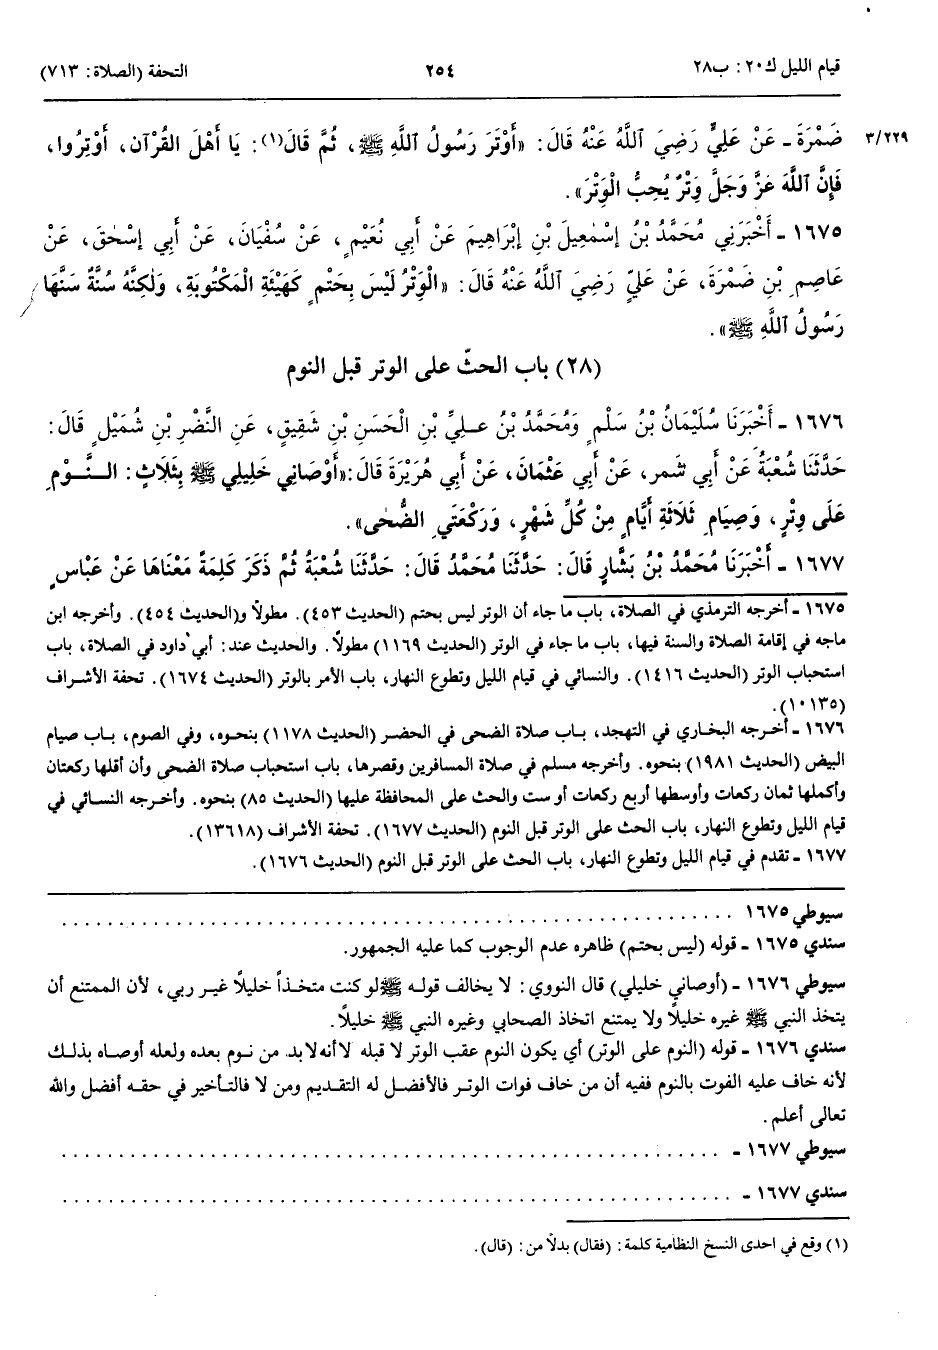 قيام الليل ك٢٠: ب٢٨
٢٥٤
التحفة (الصلاة: ٧١٣)
٣/٢٢٩
ضَمْرَةَ ـ عَنْ عَلِيٍّ رَضِيَ ٱللَّهُ عَنْهُ قَالَ: «أَوْتَرَ رَسُولُ ٱللَّهِ ﷺ، ثُمَّ قَالَ(١): يَا أَهْلَ القُرْآن، أَوْتِرُوا،
فَإِنَّ ٱللَّهَ عَزَّ وَجَلَّ وِتْرٌ يُحِبُّ الْوَتْرَ».
١٦٧٥ ـ أَخْبَرَنِي مُحَمَّدُ بْنُ إِسْمٰعِيلَ بْنِ إِبْرَاهِيمَ عَنْ أَبِي نُعَيْمٍ، عَنْ سُفْيَانَ، عَنْ أَبِي إِسْحٰقَ، عَنْ
عَاصِمِ بْنِ ضَمْرَةَ، عَنْ عَلِيٍّ رَضِيَ ٱللَّهُ عَنْهُ قَالَ: «الْوِتْرُ لَيْسَ بِحَتْمٍ كَهَيْئَةِ الْمَكْتُوبَةِ، وَلٰكِنَّهُ سُنَّةٌ سَنَّهَا
رَسُولُ ٱللَّهِ ﷺ».
(٢٨) باب الحثّ على الوتر قبل النوم
١٦٧٦ ـ أَخْبَرَنَا سُلَيْمَانُ بْنُ سَلْمٍ وَمُحَمَّدُ بْنُ عَلِيِّ بْنِ الْحَسَنِ بْنِ شَقِيقٍ، عَنِ النَّضْرِ بْنِ شُمَيْلٍ قَالَ:
حَدَّثَنَا شُعْبَةُ عَنْ أَبِي شَمر، عَنْ أَبِي عَثْمَانَ، عَنْ أَبِي هُرَيْرَةَ قَالَ: «أَوْصَانِي خَلِيلِي ﷺ بِثَلَاثٍ: النَّوْمِ
عَلَى وِتْرٍ، وَصِيَامِ ثَلَاثَةِ أَيَّامٍ مِنْ كُلِّ شَهْرٍ، وَرَكْعَتَيِ الضُّحَى».
١٦٧٧ ـ أَخْبَرَنَا مُحَمَّدُ بْنُ بَشَّارٍ قَالَ: حَدَّثَنَا مُحَمَّدُ قَالَ: حَدَّثَنَا شُعْبَةُ ثُمَّ ذَكَرَ كَلِمَةً مَعْنَاهَا عَنْ عَبَّاسٍ
١٦٧٥ ـ أخرجه الترمذي في الصلاة، باب ما جاء أن الوتر ليس بحتم (الحديث ٤٥٣). مطولاً و(الحديث ٤٥٤). وأخرجه ابن
ماجه في إقامة الصلاة والسنة فيها، باب ما جاء في الوتر (الحديث ١١٦٩) مطولاً. والحديث عند: أبي داود في الصلاة، باب
استحباب الوتر (الحديث ١٤١٦). والنسائي في قيام الليل وتطوع النهار، باب الأمر بالوتر (الحديث ١٦٧٤). تحفة الأشراف
(١٠١٣٥).
١٦٧٦ ـ أخرجه البخاري في التهجد، باب صلاة الضحى في الحضر (الحديث ١١٧٨) بنحوه، وفي الصوم، باب صيام
البيض (الحديث ١٩٨١) بنحوه. وأخرجه مسلم في صلاة المسافرين وقصرها، باب استحباب صلاة الضحى وأن أقلها ركعتان
وأكملها ثمان ركعات وأوسطها أربع ركعات أو ست والحث على المحافظة عليها (الحديث ٨٥) بنحوه. وأخرجه النسائي في
قيام الليل وتطوع النهار، باب الحث على الوتر قبل النوم (الحديث ١٦٧٧). تحفة الأشراف (١٣٦١٨).
١٦٧٧ ـ تقدم في قيام الليل وتطوع النهار، باب الحث على الوتر قبل النوم (الحديث ١٦٧٦).
سيوطي ١٦٧٥ ........................................
سندي ١٦٧٥ ـ قوله (ليس بحتم) ظاهره عدم الوجوب كما عليه الجمهور.
سيوطي ١٦٧٦ ـ (أوصاني خليلي) قال النووي: لا يخالف قوله ﷺ لو كنت متخذاً خليلاً غير ربي، لأن الممتنع أن
يتخذ النبي ﷺ غيره خليلاً ولا يمتنع اتخاذ الصحابي وغيره النبي ﷺ خليلاً.
سندي ١٦٧٦ ـ قوله (النوم على الوتر) أي يكون النوم عقب الوتر لا قبله لا أنه لا بد من نوم بعده ولعله أوصاه بذلك
لأنه خاف عليه الفوت بالنوم ففيه أن من خاف فوات الوتر فالأفضل له التقديم ومن لا فالتأخير في حقه أفضل والله
تعالى أعلم.
سيوطي ١٦٧٧ ـ ........................................
سندي ١٦٧٧ ـ ........................................
(١) وقع في احدى النسخ النظامية كلمة: (فقال) بدلاً من: (قال).